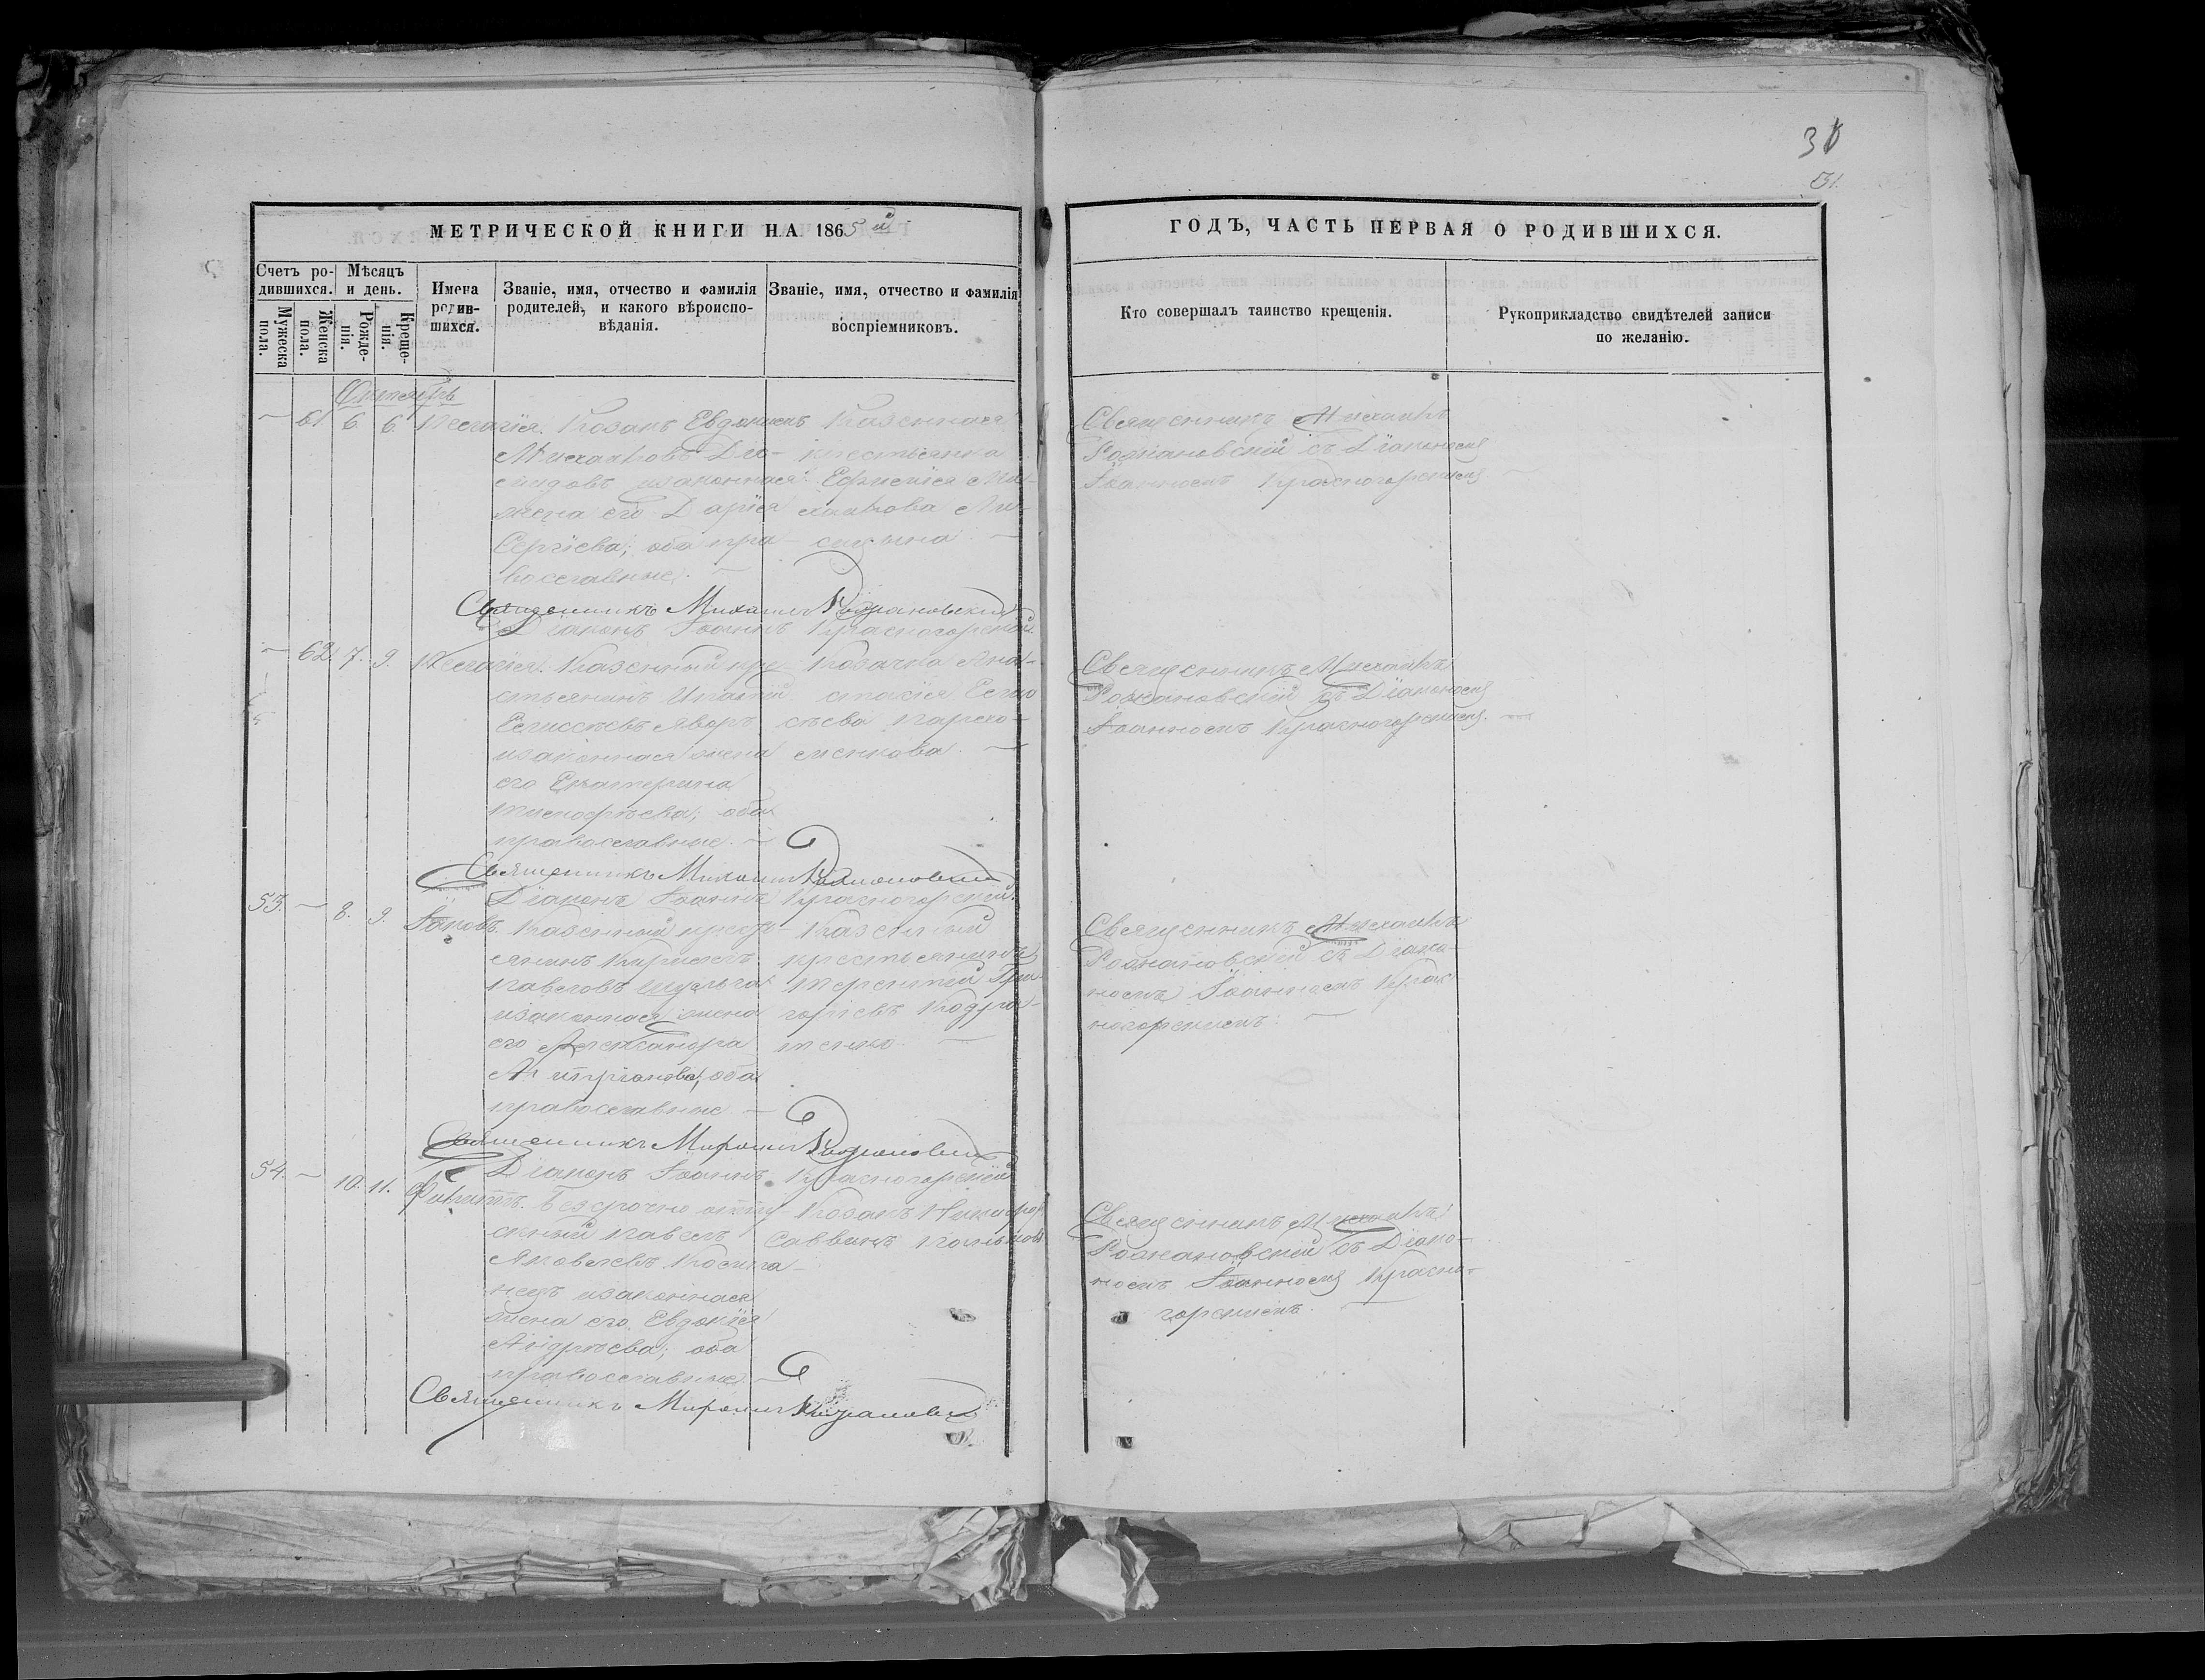 31
МЕТРИЧЕСКОЙ КНИГИ НА 1865й
ГОДЪ, ЧАСТЬ ПЕРВАЯ О РОДИВШИХСЯ.
Счетъ ро-
дившихся.
Мужеска
пола.
Женска
пола.
Мѣсяцъ
и день.
Рожде-
нія.
Креще-
нія.
Имена
родив-
шихся.
Званіе, имя, отчество и фамилія
родителей, и какого вѣроиспо-
вѣданія.
Званіе, имя, отчество и фамилія
воспріемниковъ.
Кто совершалъ таинство крещенія.
Рукоприкладство свидѣтелей записи
по желанію.
— 61. 6. 6. Пелагія.
Козакъ Евдокимъ
Михаиловъ
изаконная
жена его Дарія
Сергіева; оба пра-
вославные. —
Казенная
крестьянка
Ефимія Ми-
хаилова
Священникъ Михаилъ
Рожановскій съ Діакономъ
Іоанномъ Красногорскимъ
Священникъ Михаилъ Рожановскій
Діаконъ Іоаннъ Красногорскій.
— 62. 7. 9. Пелагія.
Казенный кре-
стьянинъ Игнатій
Елисѣевъ Яворъ
изаконная жена
его Екатерина
Тимофѣева; оба
православные. —
Козачка Ана-
стасія
Священникъ Михаилъ
Рожановскій съ Діакономъ
Іоанномъ Красногорскимъ. —
Священникъ Михаилъ Рожановскій
Діаконъ Іоаннъ Красногорскій.
53. — 8. 9. Іаковъ.
Казенный кресть-
янинъ Кириллъ
Павловъ Шульга
изаконная жена
его Александра
православные —
Казенный
крестьянинъ
Терентій Гри-
горьевъ Кодра-
тенко. —
Священникъ Михаилъ
Рожановскій съ Діако-
номъ Іоанномъ Крас-
ногорскимъ. —
Священникъ Михаилъ Рожановскій
Діаконъ Іоаннъ Красногорскій
54. — 10. 11. Филиппъ.
Безсрочно отпу-
скный Павелъ
Яковлевъ
изаконная
жена его Евдокія
Андрѣева; оба
православные. —
Козакъ Никифоръ
Саввинъ
Священникъ Михаилъ
Рожановскій съ Діако-
номъ Іоанномъ Красно-
горскимъ. —
Священникъ Михаилъ Рожановскій